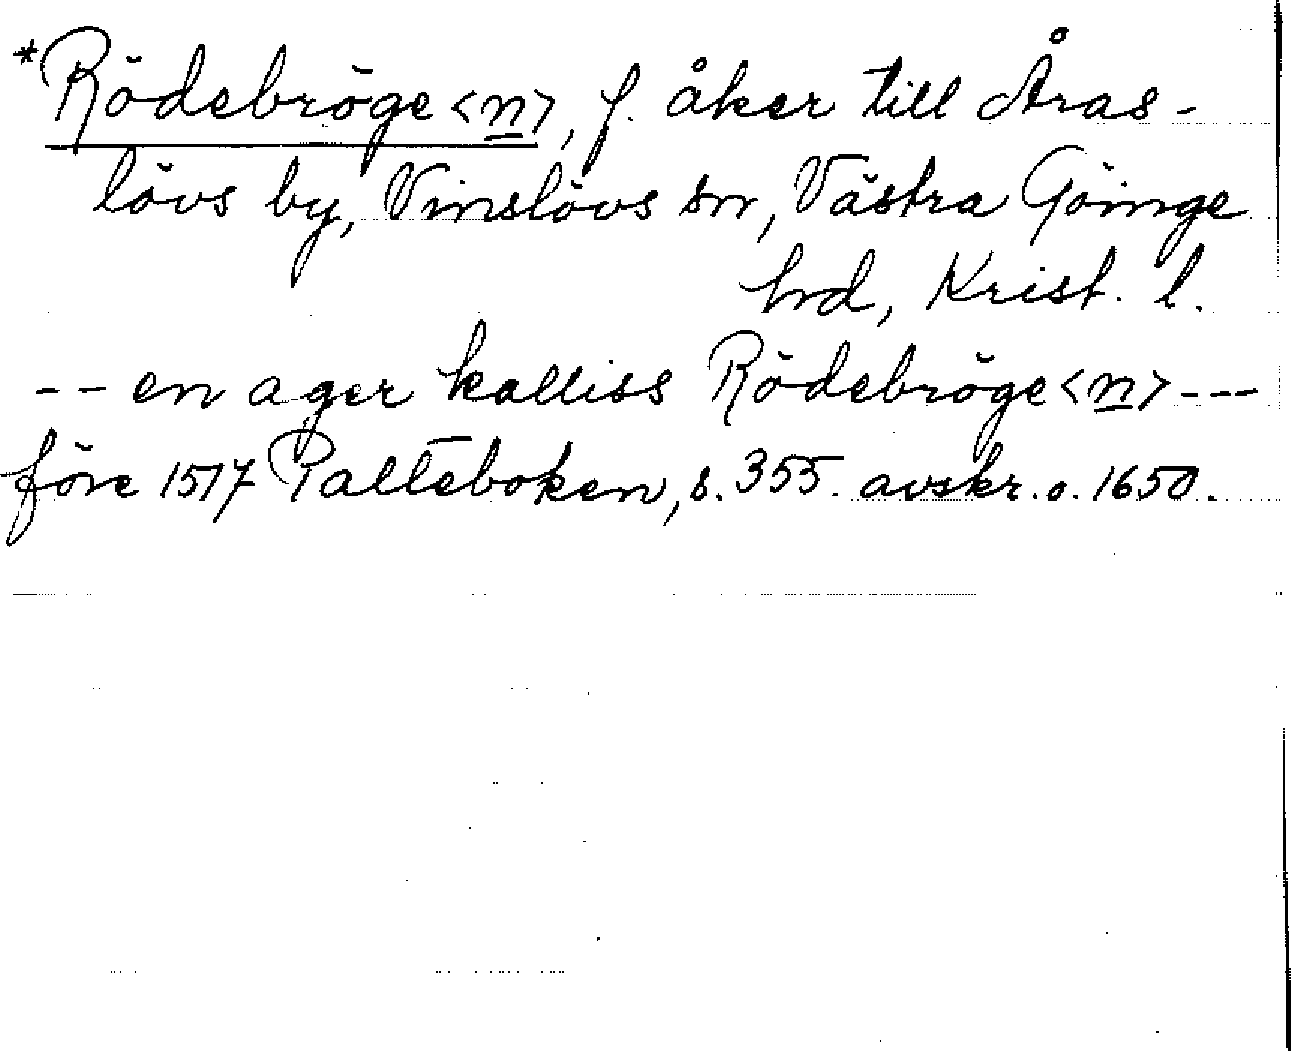 *Rödebröge<n>, f. åker till Åras-
lövs by, Vinslövs sn, Västra Göinge
hrd, Krist. l.
-- en ager kalliss Rödebröge<n> ---
före 1517 Palteboken, s. 355. avskr. o. 1650.